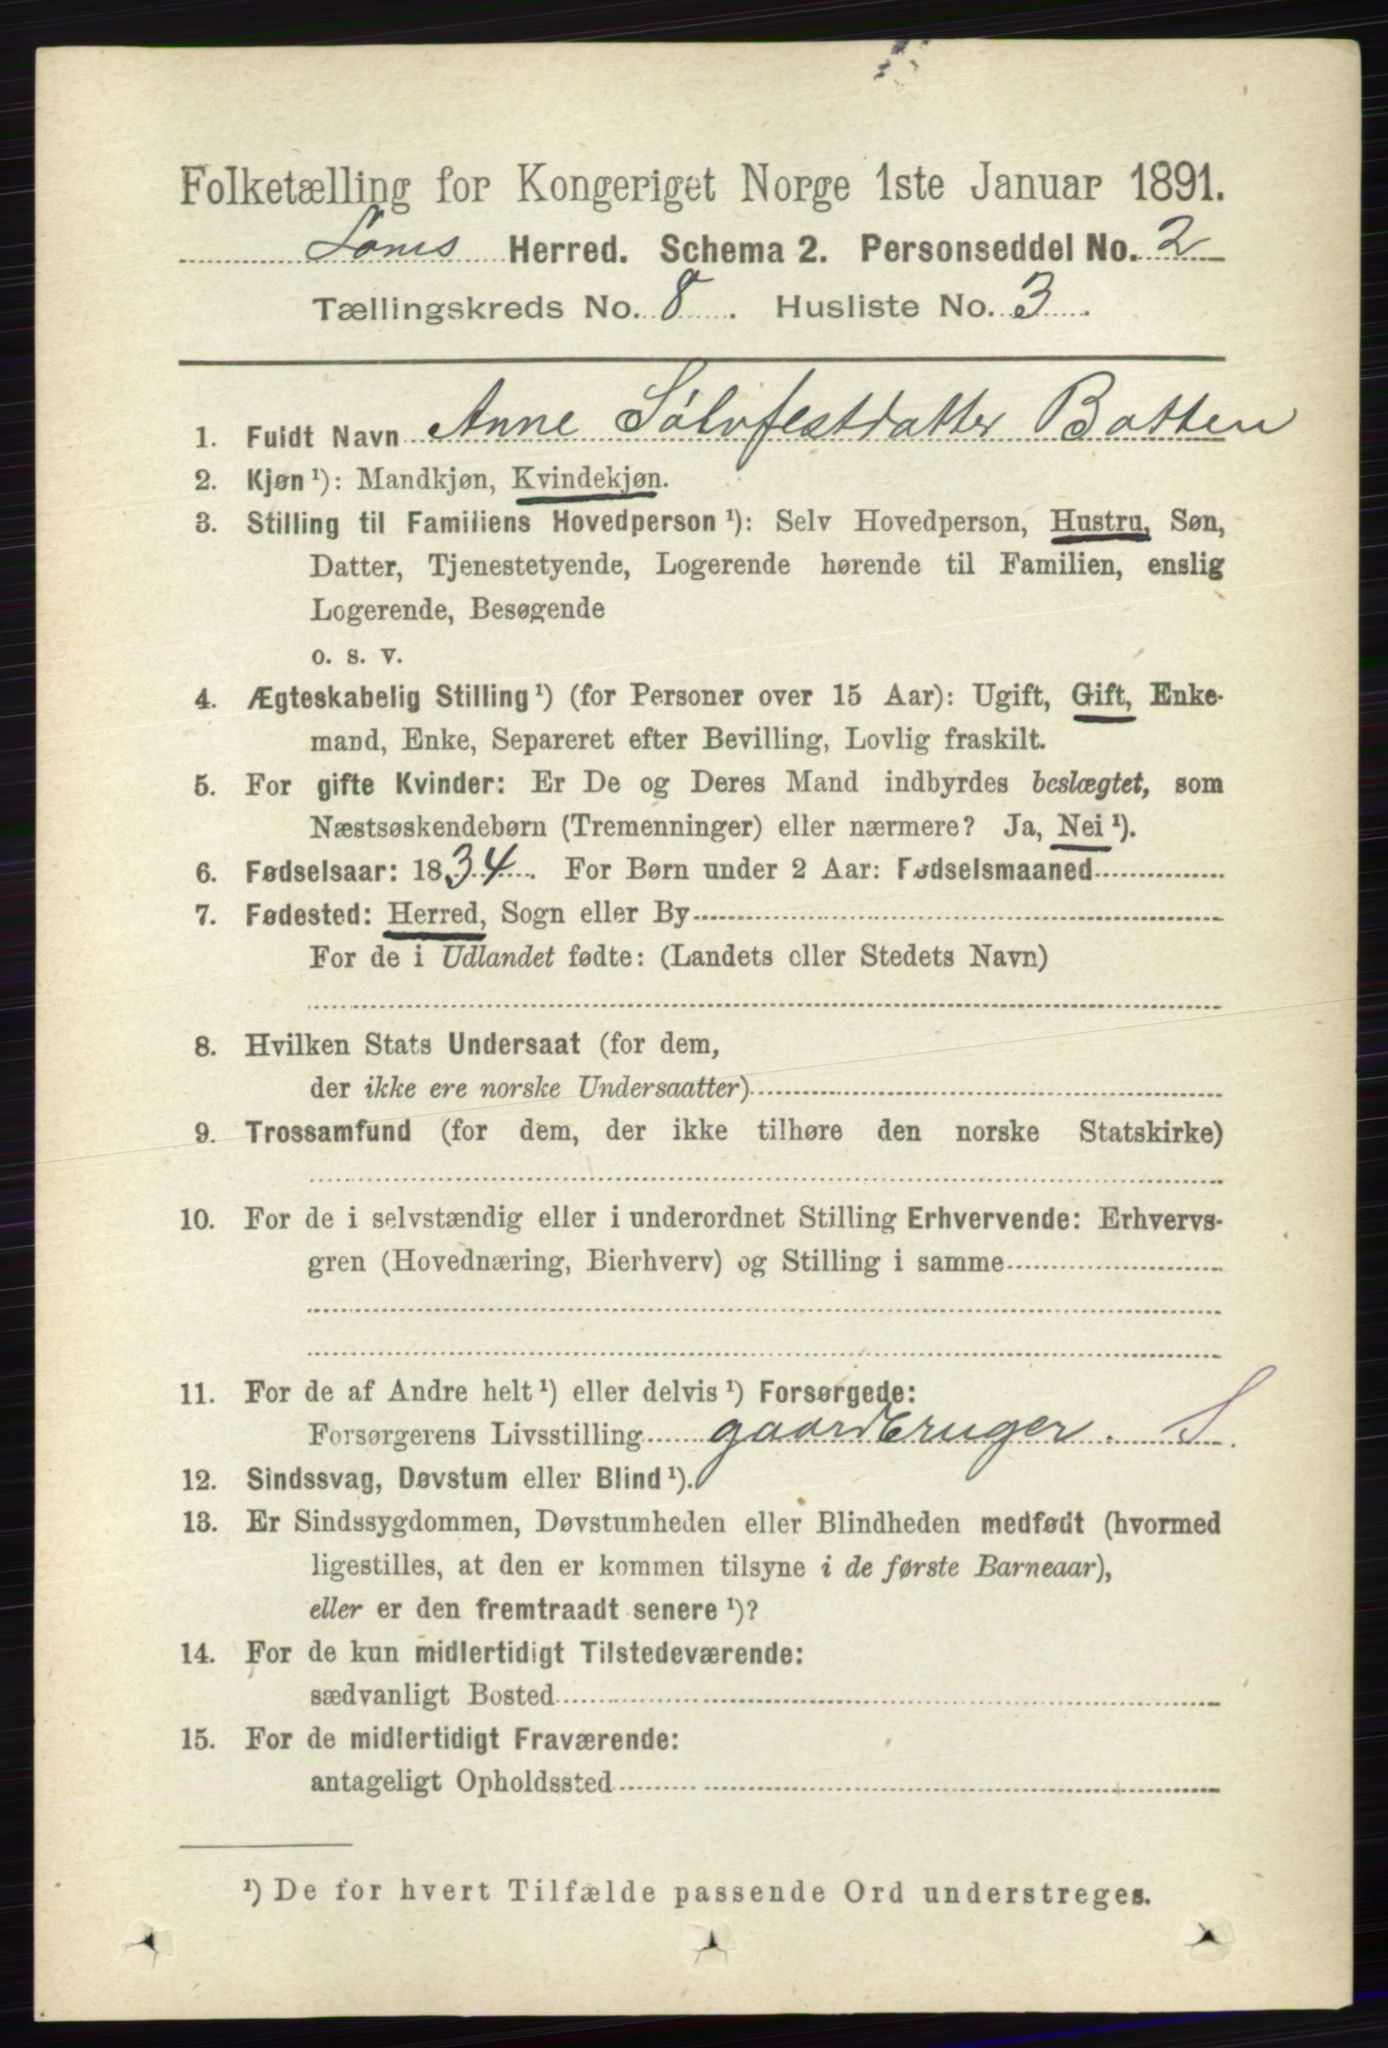 Folketælling for Kongeriget Norge 1ste Januar 1891.
Loms Herred. Schema 2. Personseddel No. 2
Tællingskreds No. 8. Husliste No. 3.
1. Fuldt Navn Anne Sølvfestdatter Botten
2. Kjøn¹): Mandkjøn, Kvindekjøn.
3. Stilling til Familiens Hovedperson¹): Selv Hovedperson, Hustru, Søn,
Datter, Tjenestetyende, Logerende hørende til Familien, enslig
Logerende, Besøgende
o. s. v.
4. Ægteskabelig Stilling¹) (for Personer over 15 Aar): Ugift, Gift, Enke-
mand, Enke, Separeret efter Bevilling, Lovlig fraskilt.
5. For gifte Kvinder: Er De og Deres Mand indbyrdes beslægtet, som
Næstsøskendebørn (Tremenninger) eller nærmere? Ja, Nei¹).
6. Fødselsaar: 1834. For Børn under 2 Aar: Fødselsmaaned
7. Fødested: Herred, Sogn eller By
For de i Udlandet fødte: (Landets eller Stedets Navn)
8. Hvilken Stats Undersaat (for dem,
der ikke ere norske Undersaatter)
9. Trossamfund (for dem, der ikke tilhøre den norske Statskirke)
10. For de i selvstændig eller i underordnet Stilling Erhvervende: Erhvervs-
gren (Hovednæring, Bierhverv) og Stilling i samme
11. For de af Andre helt¹) eller delvis¹) Forsørgede:
Forsørgerens Livsstilling gaardbruger. S.
12. Sindssvag, Døvstum eller Blind¹).
13. Er Sindssygdommen, Døvstumheden eller Blindheden medfødt (hvormed
ligestilles, at den er kommen tilsyne i de første Barneaar),
eller er den fremtraadt senere¹)?
14. For de kun midlertidigt Tilstedeværende:
sædvanligt Bosted
15. For de midlertidigt Fraværende:
antageligt Opholdssted
¹) De for hvert Tilfælde passende Ord understreges.